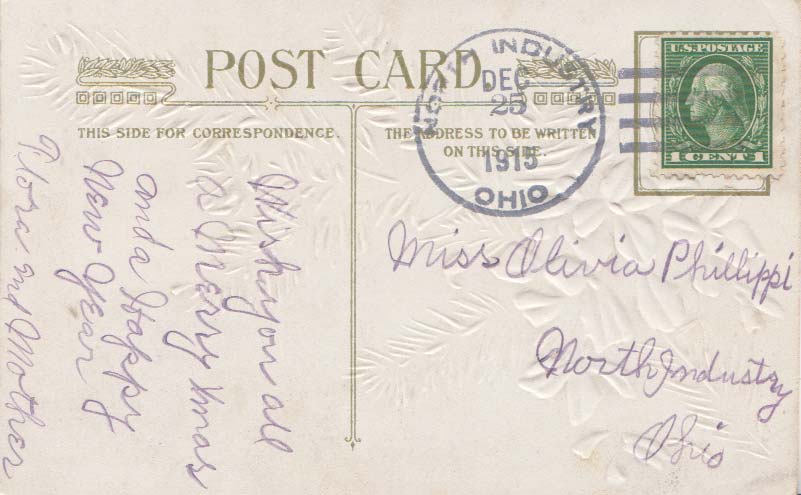 POST CARD
THIS SIDE FOR CORRESPONDENCE.
THE ADDRESS TO BE WRITTEN
ON THIS SIDE.
NORTH INDUSTRY
DEC
25
1915
OHIO
U.S. POSTAGE
1 CENT 1
Wish you all
a Merry Xmas
and a Happy
New Year
Flora and Mother
Miss Olivia Phillippi
North Industry
Ohio